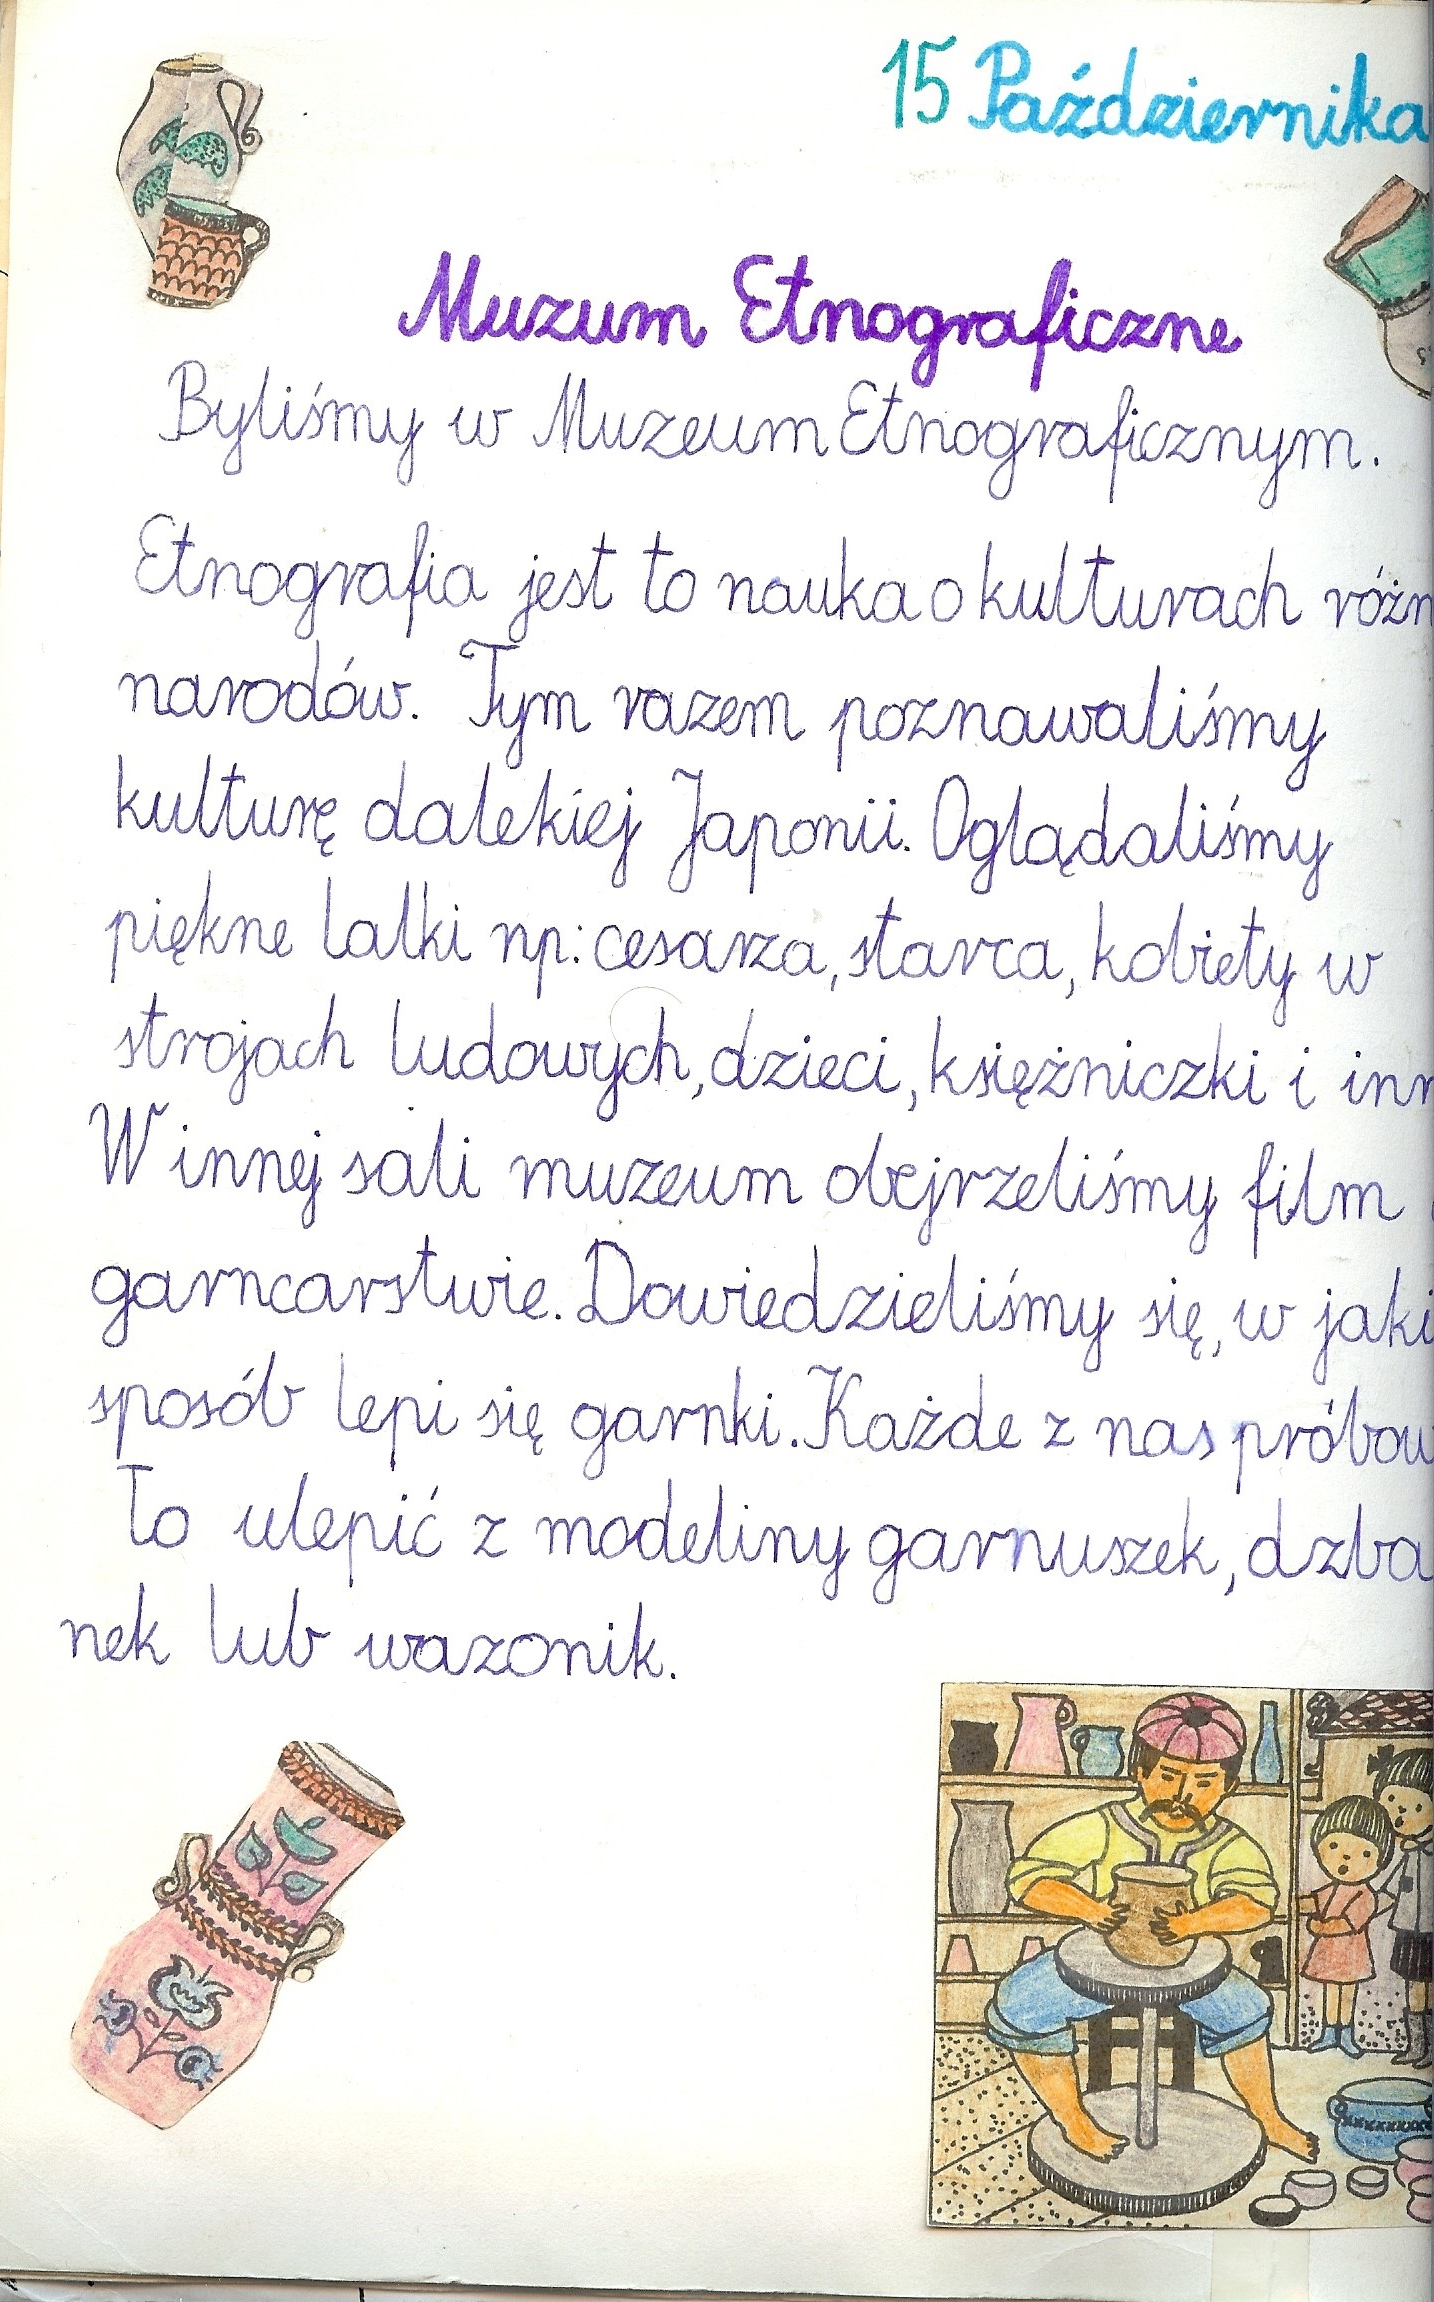 15 Października
Muzum Etnograficzne
Byliśmy w Muzeum Etnograficznym.
Etnografia jest to nauka o kulturach różn
narodów. Tym razem poznawaliśmy
kulturę dalekiej Japonii. Oglądaliśmy
piękne lalki np: cesarza, starca, kobiety w
strojach ludowych, dzieci, księżniczki i inn
W innej sali muzeum obejrzeliśmy film
garncarstwie. Dowiedzieliśmy się, w jaki
sposób lepi się garnki. Każde z nas próbow
To ulepić z modeliny garnuszek, dzba
nek lub wazonik.